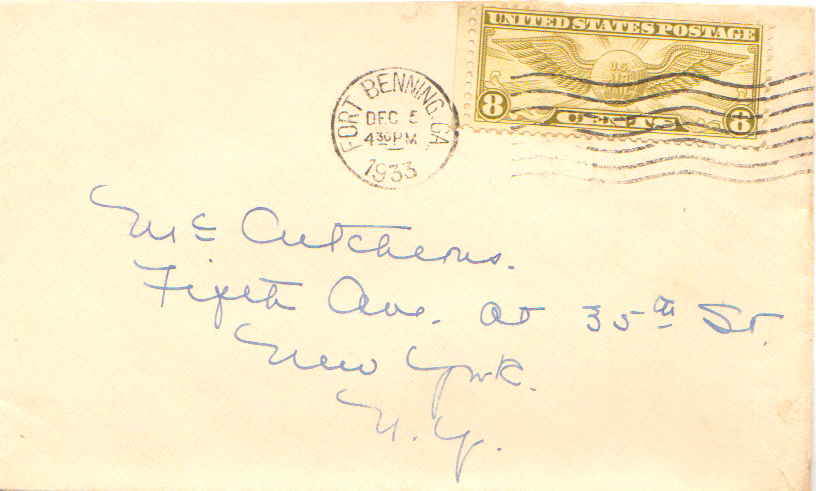 UNITED STATES POSTAGE
U.S.
8 CENTS 8
FORT BENNING, GA
DEC 5
4 30 PM
1933
McCutcheons.
Fifth Ave. at 35th St.
New York.
N.Y.